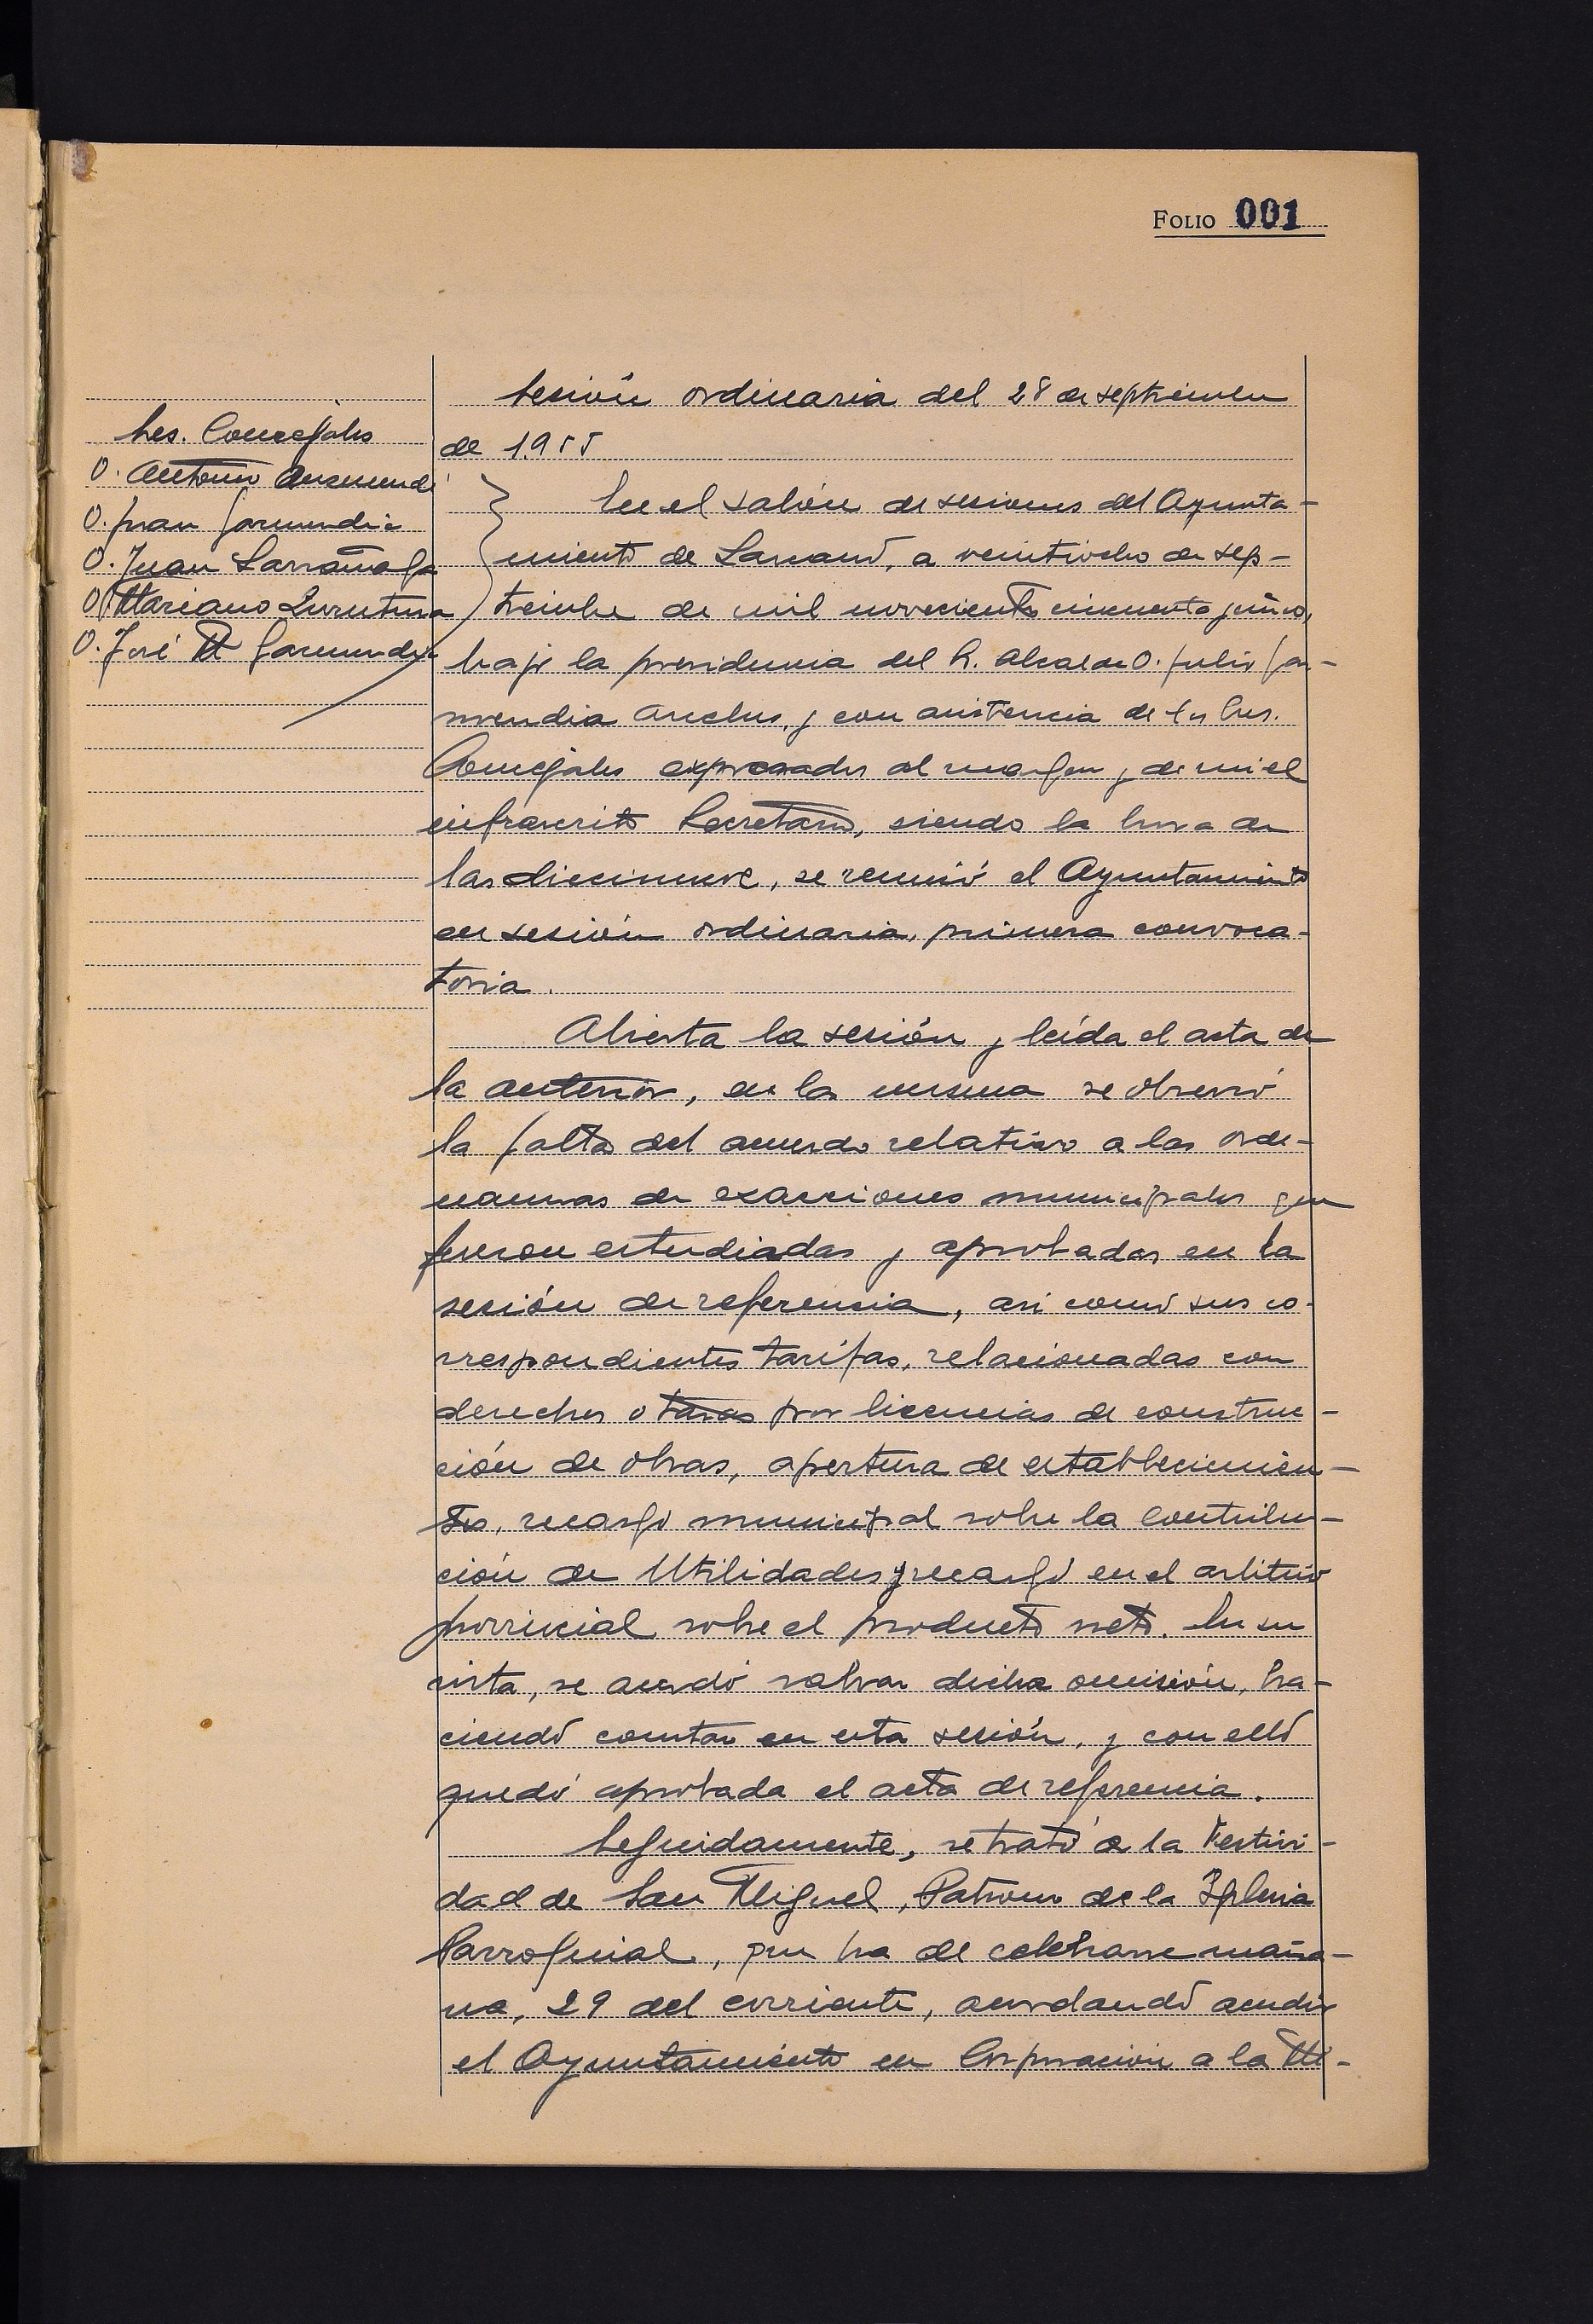 FOLIO 001
Sres. Concejales
D. Antonio
D. Juan Garmendia
D. Juan Larrañaga
D. Mariano Zurutuza
D. José M Garmendia
Sesión ordinaria del 28 de septiembre
de 1.955
En el salón de sesiones del Ayunta-
miento de Larraul, a veintiocho de sep-
tiembre de mil novecientos cincuenta y cinco,
bajo la presidencia del Sr. Alcalde D. Julio Gar-
mendia y con asistencia de los Sres.
Concejales expresados al margen y de mi el
infrascrito Secretario, siendo la hora de
las diecinueve, se reunió el Ayuntamiento
en sesión ordinaria, primera convoca-
toria.
Abierta la sesión y leída el acta de
la anterior, en la misma se observó
la falta del acuerdo relativo a las orde-
nanzas de exacciones municipales que
fueron estudiadas y aprobadas en la
sesión de referencia, asi como sus co-
rrespondientes tarifas, relacionadas con
derechos o tasas por licencias de construc-
ción de obras, apertura de establecimien-
tos, recargo municipal sobre la Contribu-
ción de Utilidades y recargo en el arbitrio
provincial sobre el producto neto. En su
vista, se acordó salvar dicha omisión, ha-
ciendo constar en esta sesión, y con ello
quedó aprobada el acta de referencia.
Seguidamente, se trató de la Festivi-
dad de San Miguel, Patrono de la Iglesia
Parroquial, que ha de celebrarse maña-
na, 29 del corriente, acordando acudir
el Ayuntamiento en Corporación a la Mi-